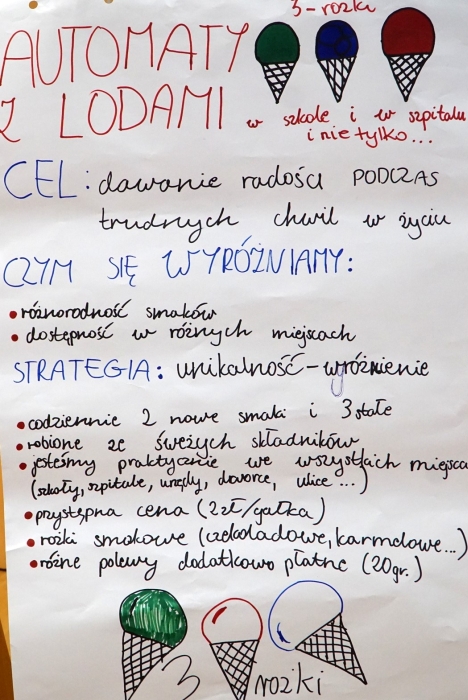 3-rożki
AUTOMATY
Z LODAMI
w szkole i w szpitalu
i nie tylko...
CEL: dawanie radości PODCZAS
trudnych chwil w życiu
CZYM SIĘ WYRÓŻNIAMY:
• różnorodność smaków
• dostępność w różnych miejscach
STRATEGIA: unikalność - wyróżnienie
• codziennie 2 nowe smaki i 3 stałe
• robione ze świeżych składników
• jesteśmy praktycznie we wszystkich miejsca
(szkoły, szpitale, urzędy, dworce, ulice...)
• przystępna cena (2zł/gałka)
• rożki smakowe (czekoladowe, karmelowe...)
• różne polewy dodatkowo płatne (20gr.)
3 rożki